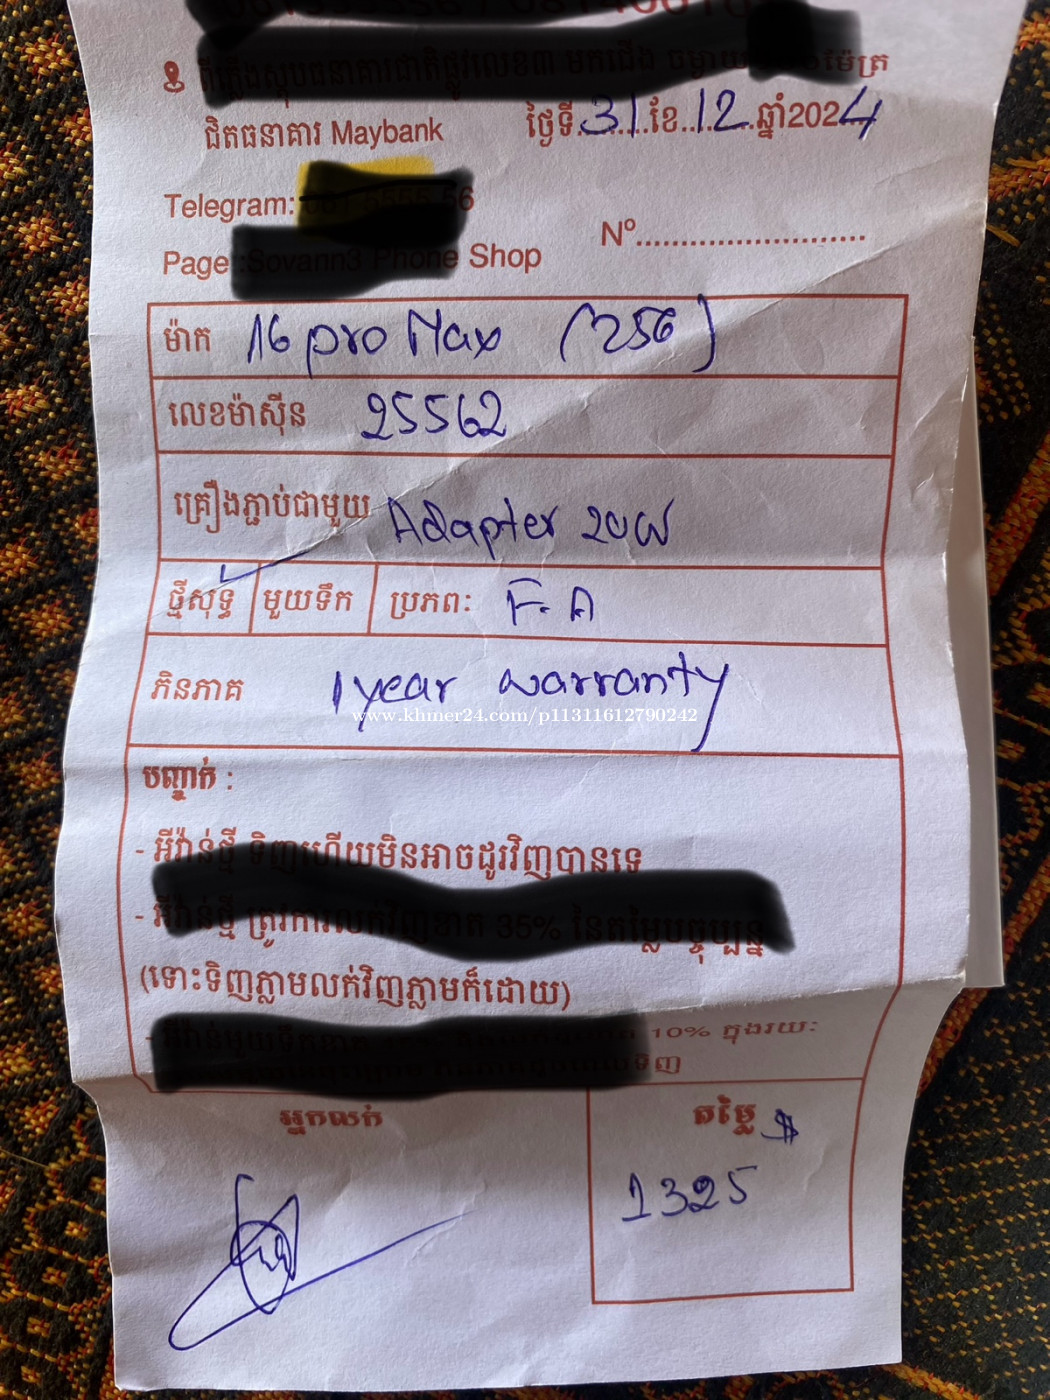 ម៉ែត្រ
ជិតធនាគារ Maybank ថ្ងៃទី.31.ខែ.12.ឆ្នាំ2024
Telegram: 66
Nº........................
Page: Phone Shop
ម៉ាក 16 pro Max (256)
លេខម៉ាស៊ីន 25562
គ្រឿងភ្ជាប់ជាមួយ Adapter 20W
ថ្មីសុទ្ធ មួយទឹក ប្រភព: F.A
ភិនភាគ 1 year warranty
www.khmer24.com/p11311612790242
បញ្ជាក់ :
- អីវ៉ាន់ថ្មី ទិញហើយមិនអាចដូរវិញបានទេ
- អីវ៉ាន់ថ្មី ត្រូវការលក់វិញខាត 35% នៃតម្លៃបច្ចុប្បន្ន
(ទោះទិញភ្លាមលក់វិញភ្លាមក៏ដោយ)
10% ក្នុងរយៈ
ទិញ
អ្នកលក់ តម្លៃ $
1325